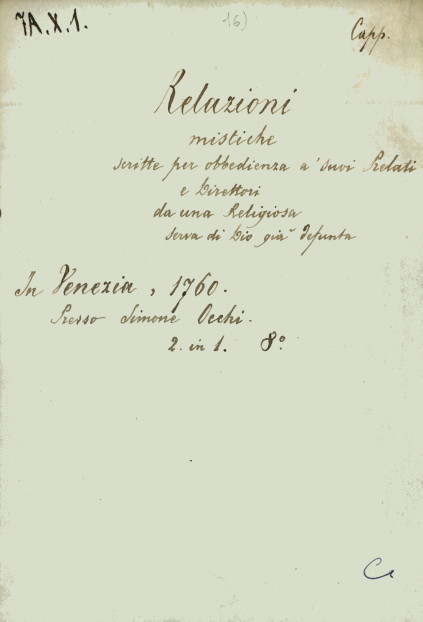 7A.X.1.
16)
Capp.
Relazioni
mistiche
scritte per obbedienza a' suoi Prelati
e Direttori
da una Religiosa
serva di Dio già defunta
In Venezia, 1760.
Presso Simone Occhi.
2. in 1. 8º